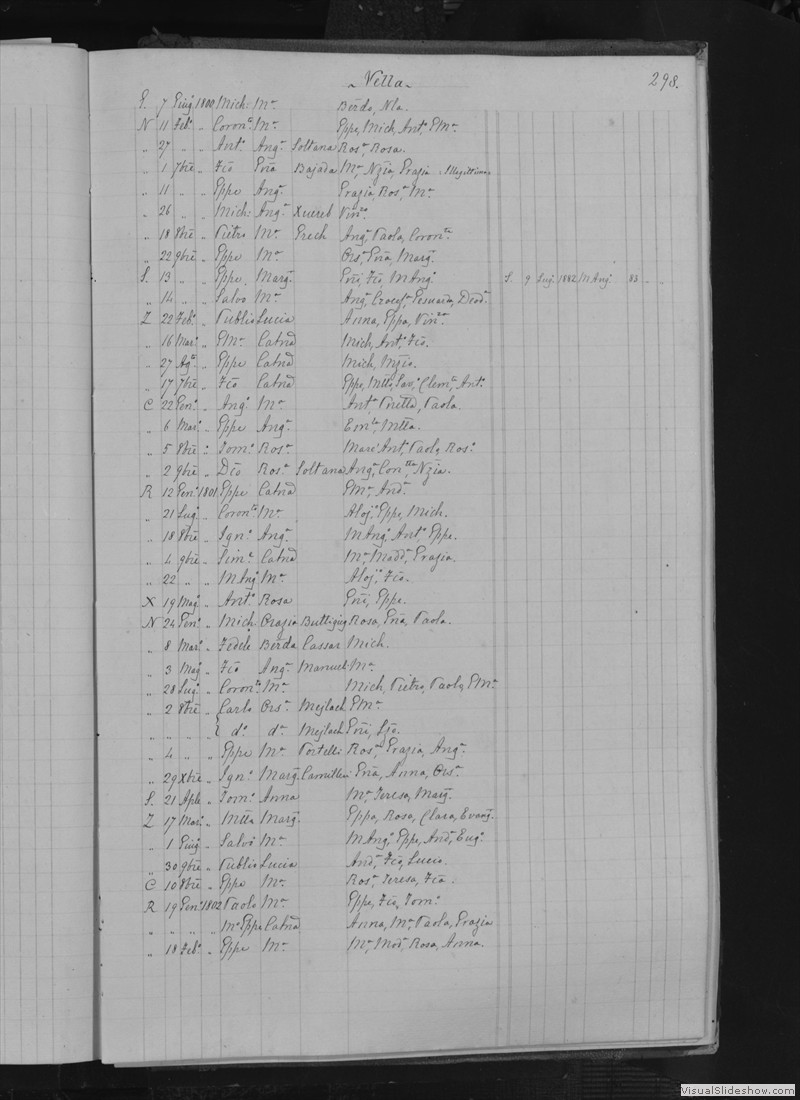 ~ Vella ~ 298.
G. 7 Giug. 1800 Mich: Mª Berda, Nla.
N 11 Feb. „ Coron. Mª Eppe, Mich, Ant. EMª
„ 27 „ „ Ant. Angª Soltana Rosª Rosa.
„ 1 7bre „ Fco Gna Bajada Mª Nzia, Grazia Illegittima
„ 11 „ „ Eppe Angª Grazia, Rosª Mª
„ 26 „ „ Mich: Angª Xuereb
„ 18 8bre „ Pietro Mª Grech Angª Paola, Coron.
„ 22 9bre „ Eppe Mª Orsª Gna, Marg.
S. 13 „ „ Eppe Marg. Gni, Fco, MAng. S. 9 Lug. 1882 MAng. 83 „ „
„ 14 „ „ Salvo Mª
Z 22 Feb. „ Publio Lucia Anna, Eppa,
„ 16 Mar. „ EMª Catna Mich, Ant. Fco.
„ 27 „ Eppe Catna Mich,
„ 17 7bre „ Fco Catna Eppe, Sav. Clem. Ant.
C 22 Gen. „ Ang. Mª Antª Paola.
„ 6 Mar. „ Eppe Angª
„ 5 8bre „ Tom. Rosª Ant. Paolo, Ros.
„ 2 9bre „ Dco Rosª Soltana Angª Nzia.
R 12 Gen. 1801 Eppe Catna EMª And.
„ 21 Lug. „ Coron. Mª Aloj. Eppe, Mich.
„ 18 8bre „ Ign. Angª MAng. Ant. Eppe.
„ 4 9bre „ Catna Mª Madd. Grazia.
„ 22 „ „ MAng. Mª Aloj. Fco.
X 19 Mag. „ Ant. Rosa Gni, Eppe.
N 24 Gen. „ Mich. Grazia Buttigieg Rosa, Gna, Paola.
„ 8 Mar. „ Fedele Berda Cassar Mich.
„ 3 Mag. „ Fco Angª Mamuel Mª
„ 28 Lug. „ Coron. Mª Mich, Pietro, Paolo, EMª
„ 2 8bre „ Carlo Orsª Mejlach EMª
„ „ „ „ { d. d. Mejlach Gni,
„ 4 „ „ Eppe Mª Portelli Rosª Grazia, Angª
„ 29 Xbre „ Ign. Marg. Camilleri Gna, Anna, Orsª
S. 21 Aple „ Tom. Anna Mª Teresa, Marg.
Z 17 Mar. „ Marg. Eppa, Rosa, Clara, Evang.
„ 1 Giug. „ Salvo Mª MAng. Eppe, And. Eug.
„ 30 9bre „ Publio Lucia And. Fco, Lucia.
C 10 8bre „ Eppe Mª Rosª Teresa, Fca.
R 19 Gen. 1802 Paolo Mª Eppe, Fco, Tom.
„ „ „ „ Mº Eppe Catna Anna, Mª Paola, Grazia
„ 18 Feb. „ Eppe Mª Mª Rosa, Anna.
VisualSlideshow.com